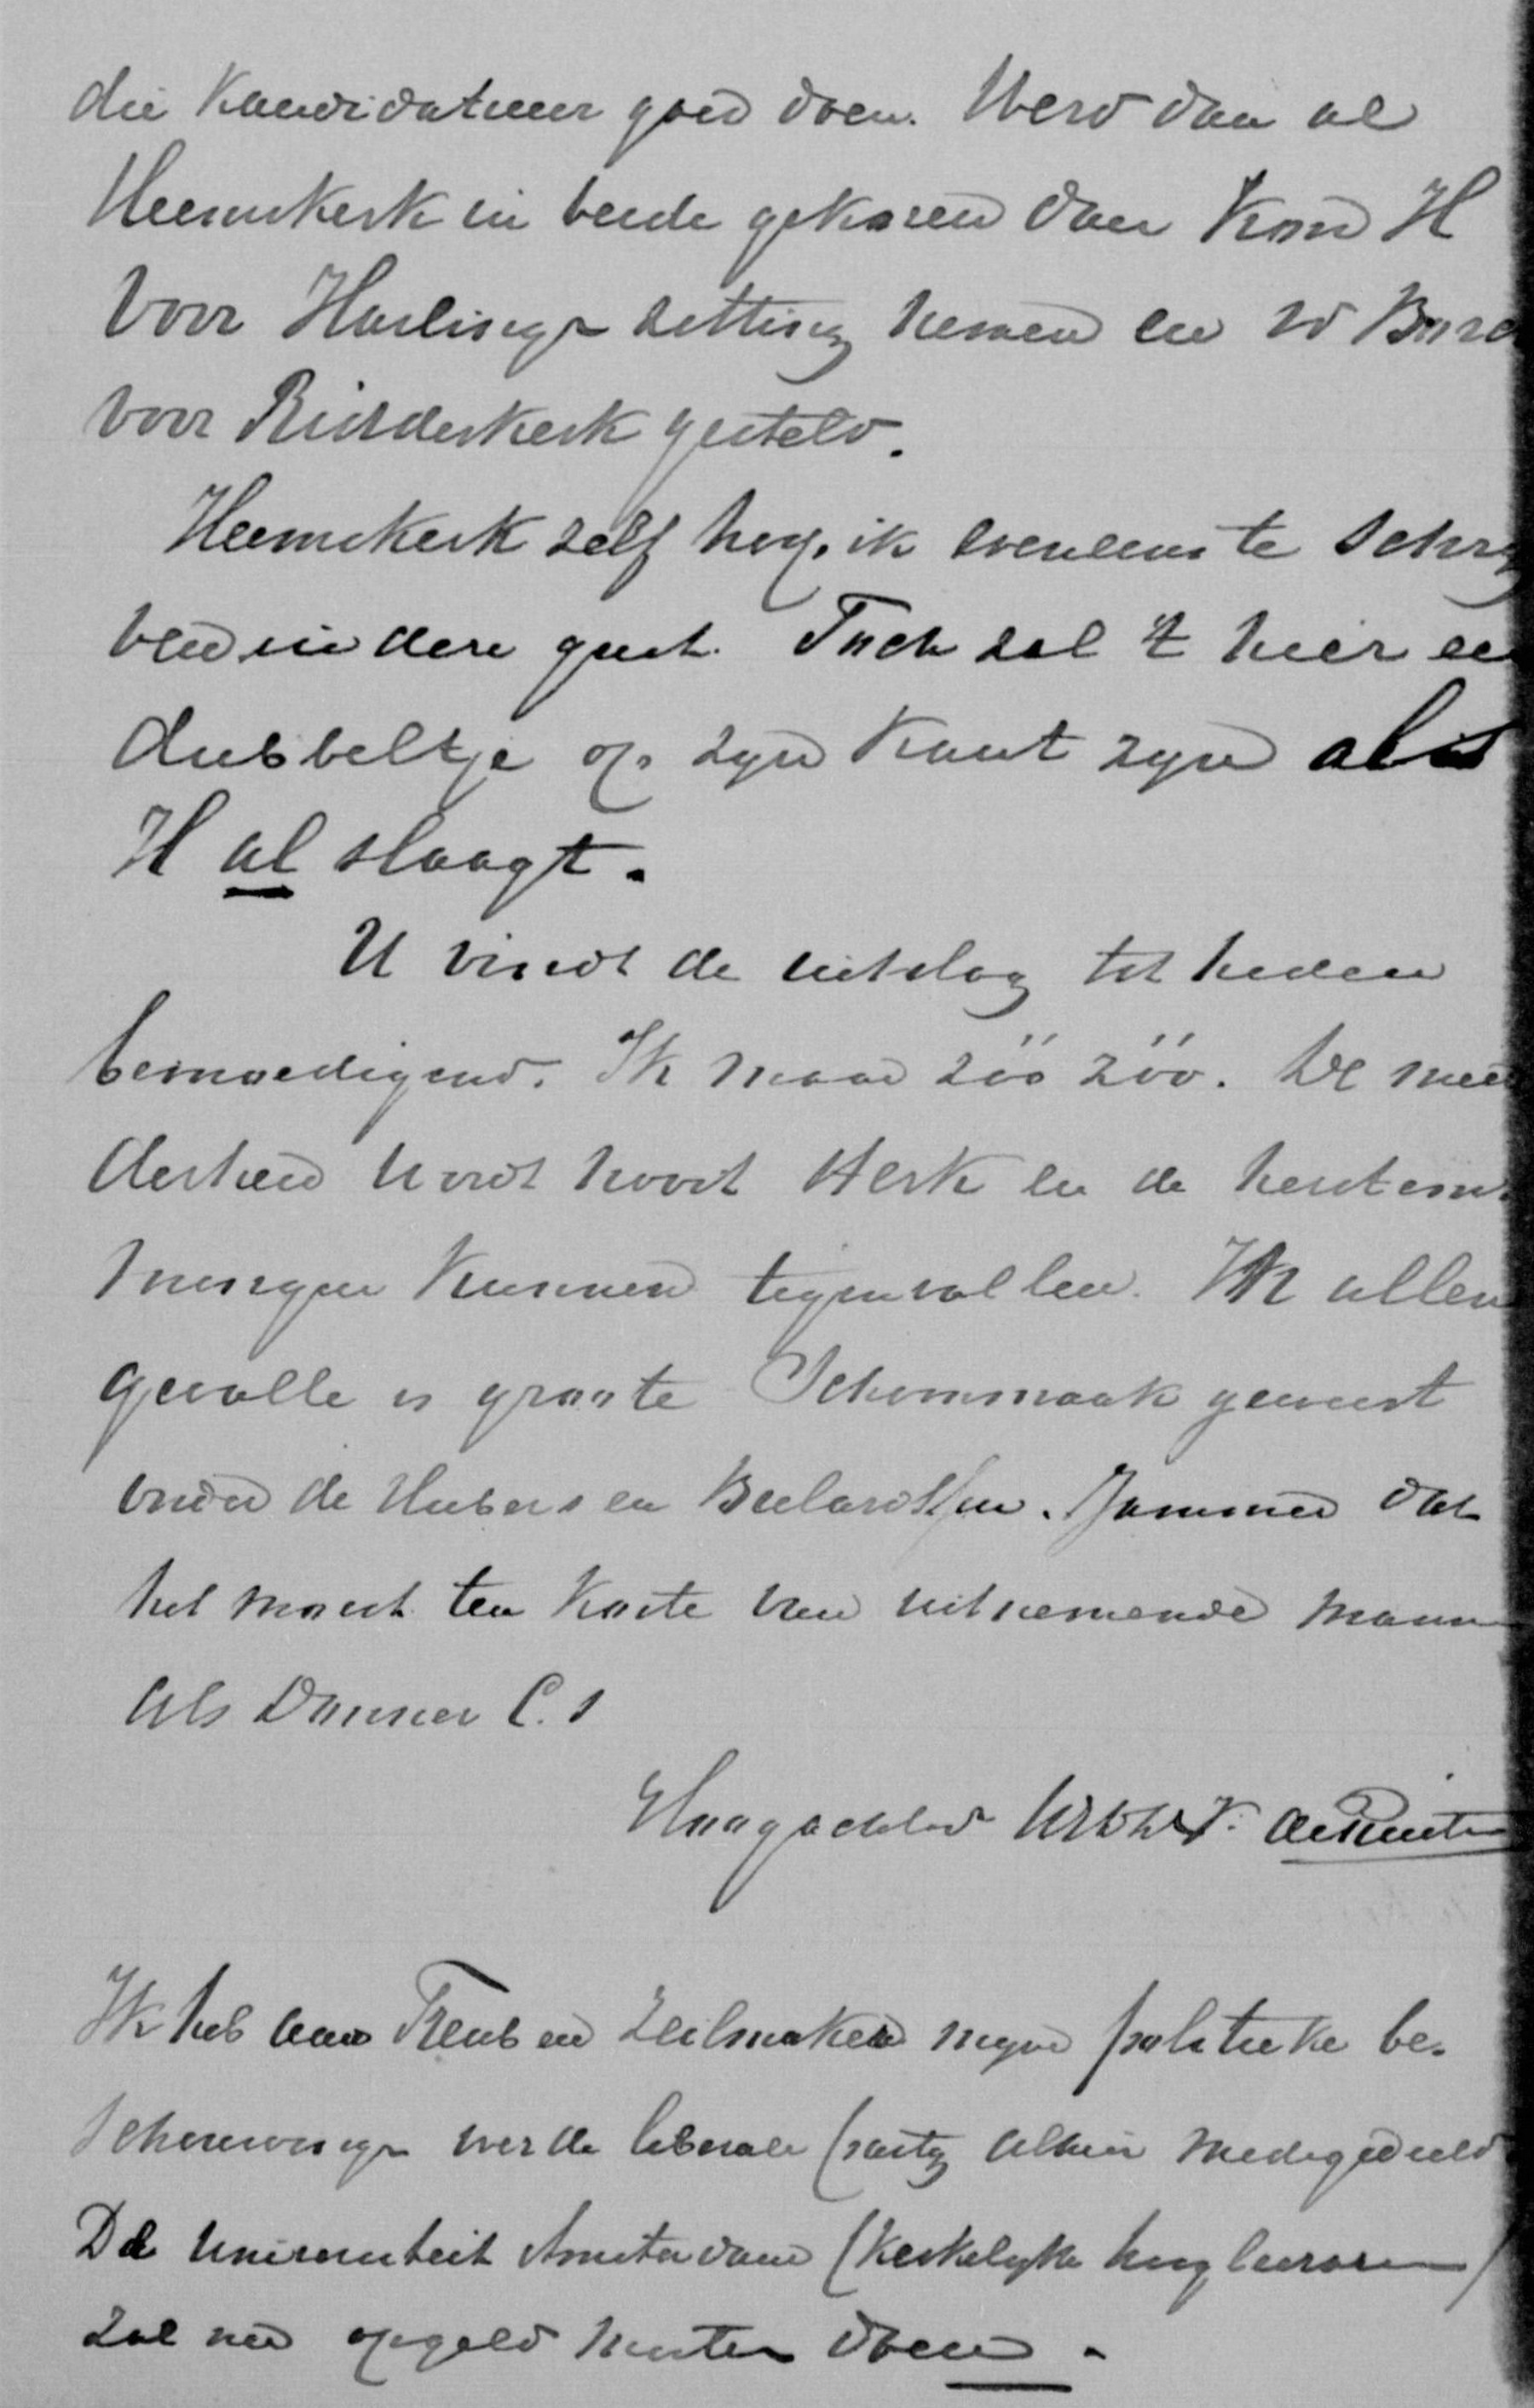 die kandidatuur goed doen. Werd dan al
Heemskerk in beide gekozen dan kon H
voor Harlingen zitting nemen en
voor Ridderkerk gesteld.
Heemskerk zelf hoop ik eveneens te schrij
ven in dezen geest. Toch zal 't hier ee
dubbeltje op zyn kant zyn als
H al slaagt.
U vindt de uitslag tot heden
bemoedigend. Ik maar zóó zóó. De mee
derheid wordt nooit sterk en de herstem
mingen kunnen tegenvallen. In allen
gevalle is groote schoonmaak geweest
onder de Hubers en Beelaerts en. Jammer dat
het moest ten koste van uitnemende mann
als Donner C.s
Hoogachtend de Ruiter
Ik heb aan Treub en Zeilmaker myne politieke be-
schouwingen over de liberale party alhier medegedeeld
De Universiteit Amsterdam (kerkelyke hoogleeraren)
zal nu opgeld moeten doen.